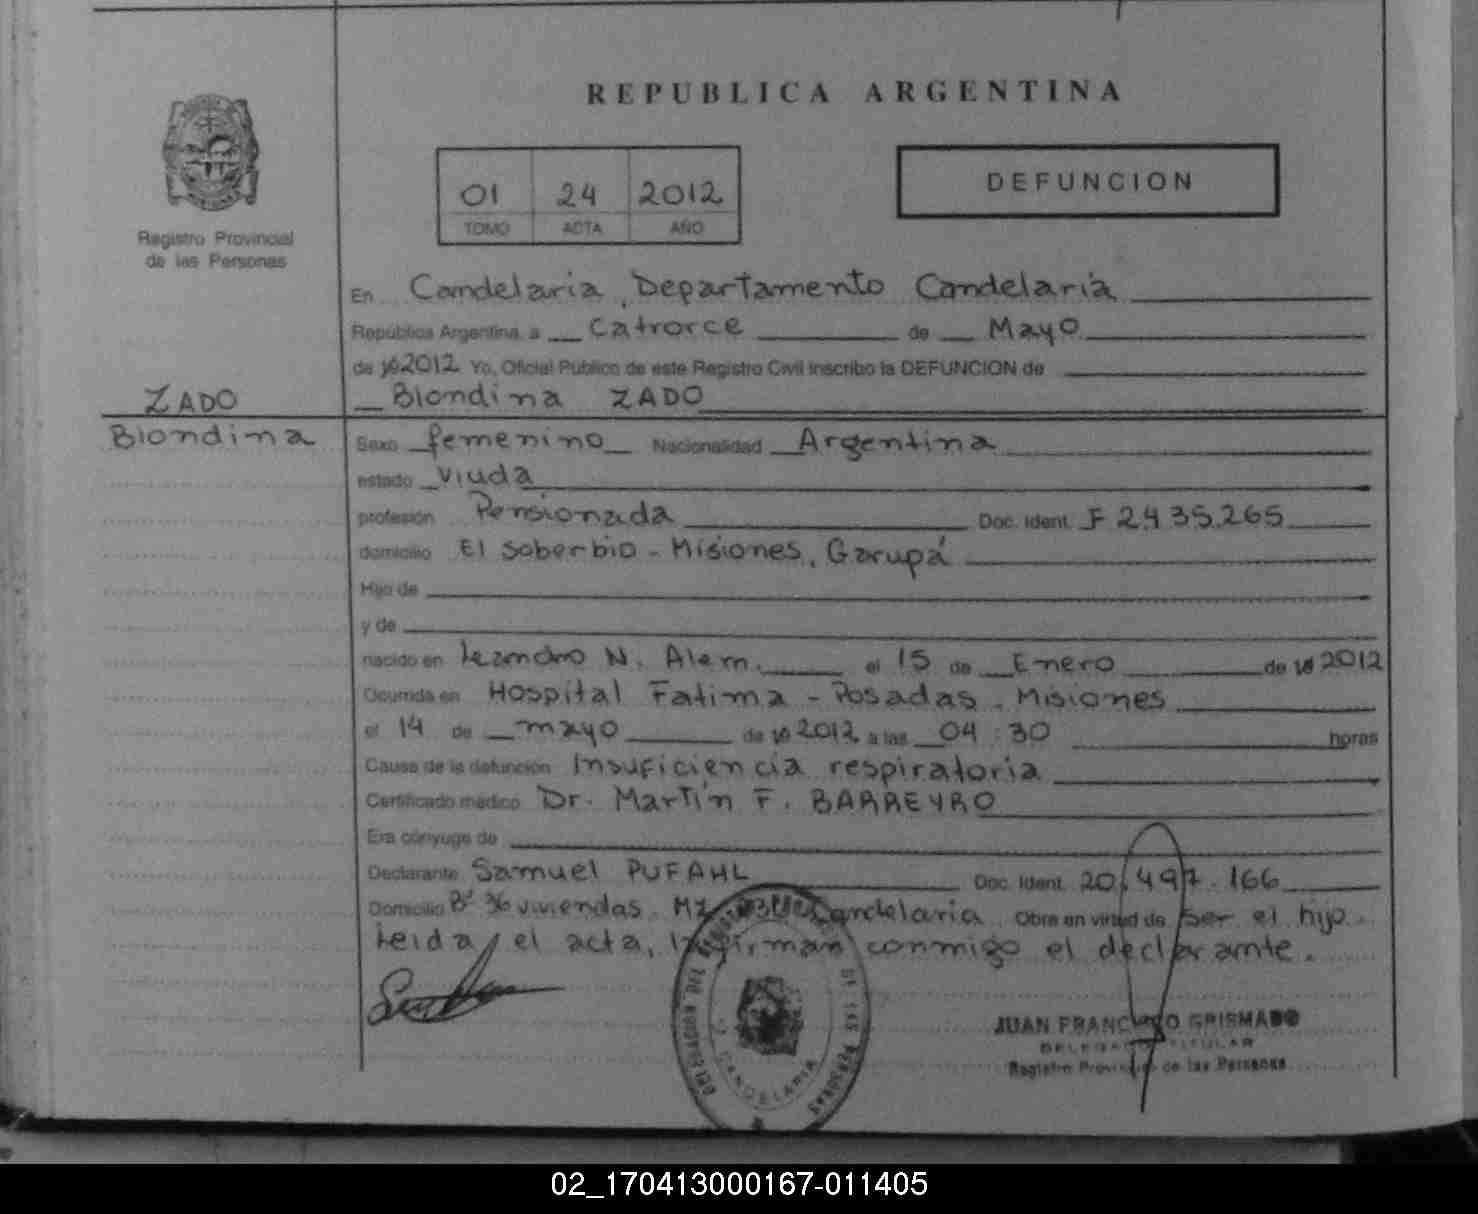 REPUBLICA ARGENTINA
01 24 2012
TOMO ACTA AÑO
DEFUNCION
Registro Provincial
de las Personas
En Candelaria, Departamento Candelaria
República Argentina, a Catrorce de Mayo
de 19 2012 Yo, Oficial Público de este Registro Civil inscribo la DEFUNCION de
ZADO
Blondina ZADO
Blondina
Sexo femenino Nacionalidad Argentina
estado Viuda
profesión Pensionada Doc. Ident. F 2.435.265
domicilio El Soberbio - Misiones, Garupá
Hijo de
y de
nacido en Leandro N. Alem. el 15 de Enero de 19 2012
Ocurrida en Hospital Fatima - Posadas. Misiones
el 14 de mayo de 19 2012 a las 04:30 horas
Causa de la defunción Insuficiencia respiratoria
Certificado médico Dr. Martín F. BARREYRO
Era cónyuge de
Declarante Samuel PUFAHL Doc. Ident. 20.497.166
Domicilio Bº 36 viviendas. Mz Candelaria Obra en virtud de Ser el hijo.
Leida el acta, la firman conmigo el declarante.
DELEGACION DEL REGISTRO DE LAS PERSONAS
CANDELARIA
JUAN FRANCISCO GRISMADO
DELEGADO TITULAR
Registro Provincial de las Personas
02_170413000167-011405